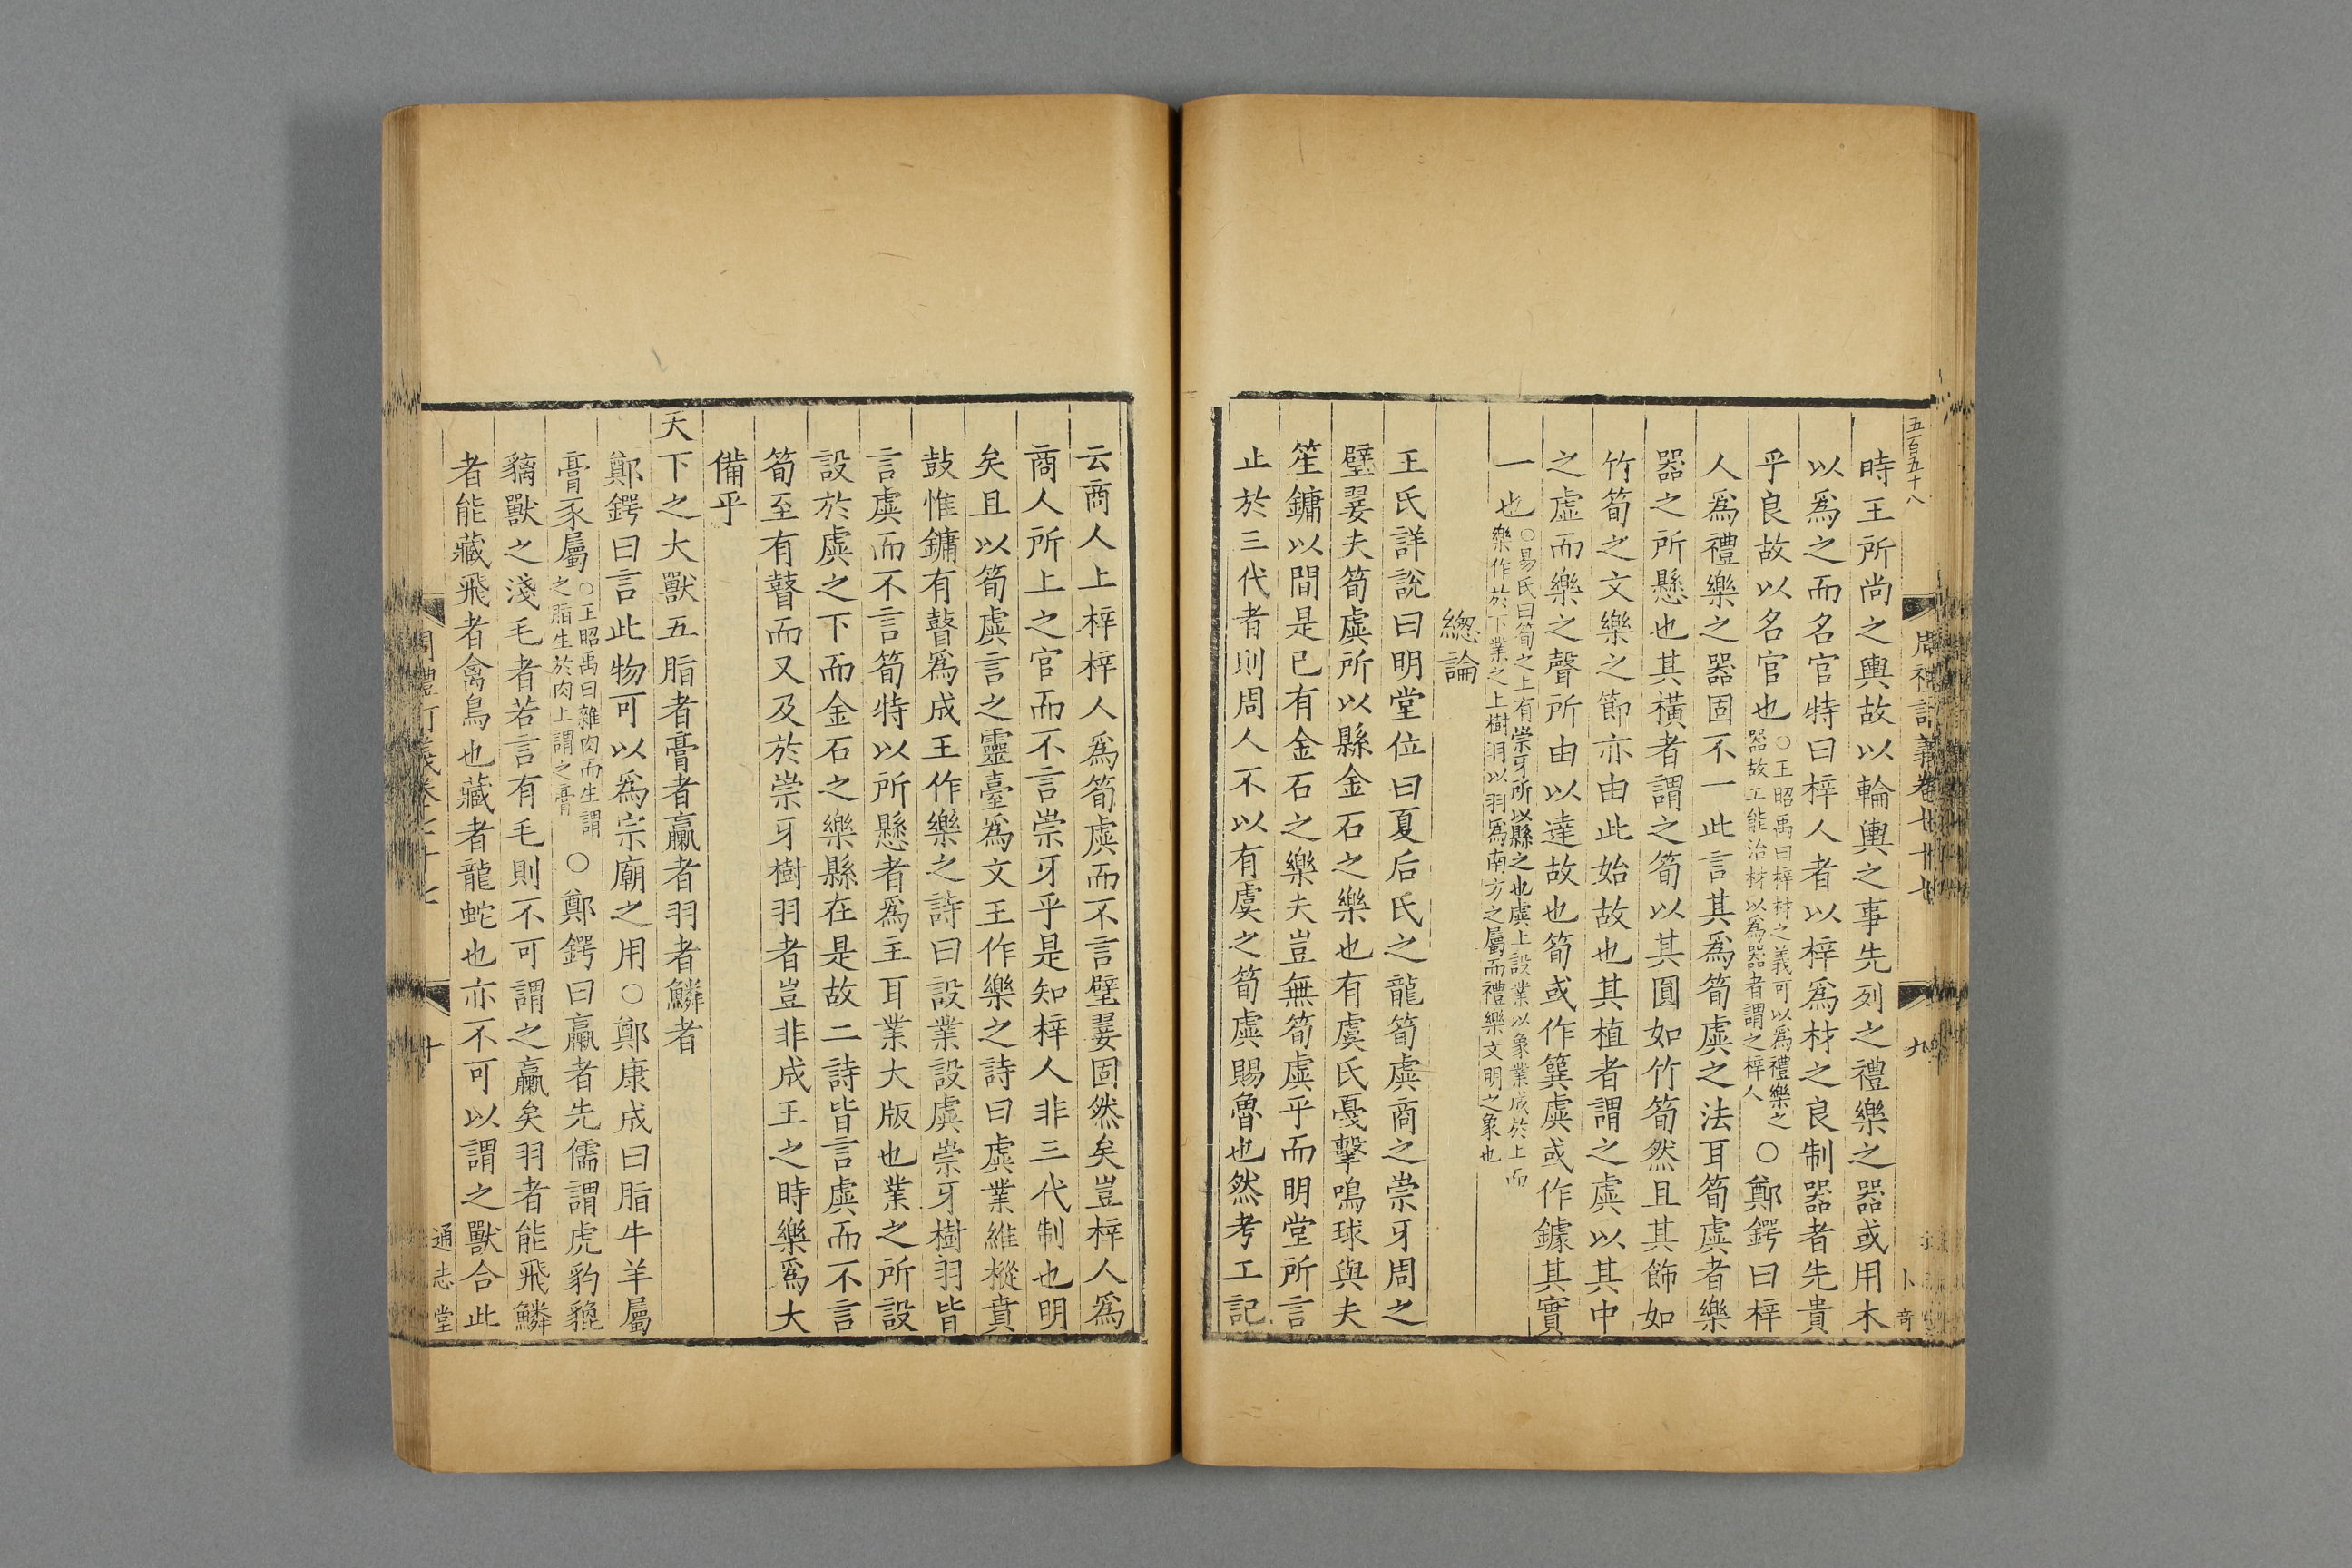 五百五十八
時王所尚之輿故以輪輿之事先列之禮樂之器或用木
以爲之而名官特曰梓人者以梓爲材之良制器者先貴
乎良故以名官也○王昭禹曰梓材之義可以爲禮樂之器故工能治材以爲器者謂之梓人○鄭鍔曰梓
人爲禮樂之器固不一此言其爲筍虡之法耳筍虡者樂
器之所懸也其橫者謂之筍以其圓如竹筍然且其飾如
竹筍之文樂之節亦由此始故也其植者謂之虡以其中
之虛而樂之聲所由以達故也筍或作簨虡或作鐻其實
一也○易氏曰筍之上有崇牙所以縣之也虡上設業以象業成於上而樂作於下業之上樹羽以羽爲南方之屬而禮樂文明之象也
總論
王氏詳說曰明堂位曰夏后氏之龍筍虡商之崇牙周之
璧翣夫筍虡所以縣金石之樂也有虞氏戞擊鳴球與夫
笙鏞以間是已有金石之樂夫豈無筍虡乎而明堂所言
止於三代者則周人不以有虞之筍虡賜魯也然考工記
云商人上梓梓人爲筍虡而不言璧翣固然矣豈梓人爲
商人所上之官而不言崇牙乎是知梓人非三代制也明
矣且以筍虡言之靈臺爲文王作樂之詩曰虡業維樅賁
鼓惟鏞有瞽爲成王作樂之詩曰設業設虡崇牙樹羽皆
言虡而不言筍特以所懸者爲主耳業大版也業之所設
設於虡之下而金石之樂縣在是故二詩皆言虡而不言
筍至有瞽而又及於崇牙樹羽者豈非成王之時樂爲大
備乎
天下之大獸五脂者膏者臝者羽者鱗者
鄭鍔曰言此物可以爲宗廟之用○鄭康成曰脂牛羊屬
膏豕屬○王昭禹曰雜肉而生謂之脂生於肉上謂之膏○鄭鍔曰臝者先儒謂虎豹貔
貙獸之淺毛者若言有毛則不可謂之臝矣羽者能飛鱗
者能藏飛者禽鳥也藏者龍蛇也亦不可以謂之獸合此
十
通志堂